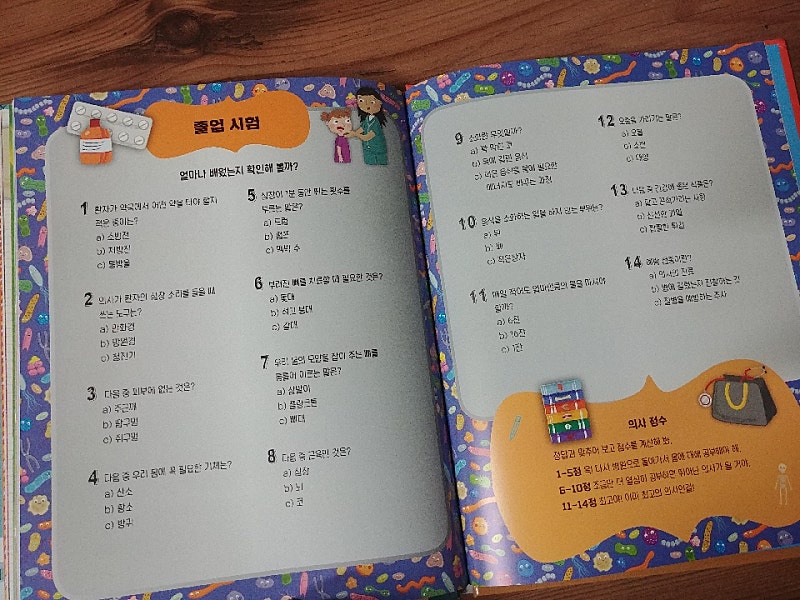 졸업 시험
얼마나 배웠는지 확인해 볼까?
1 환자가 약국에서 어떤 약을 타야 할지
적은 종이는?
a) 소방전
b) 처방전
c) 통방울
2 의사가 환자의 심장 소리를 들을 때
쓰는 도구는?
a) 만화경
b) 망원경
c) 청진기
3 다음 중 피부에 없는 것은?
a) 주근깨
b) 땀구멍
c) 쥐구멍
4 다음 중 우리 몸에 꼭 필요한 기체는?
a) 산소
b) 황소
c) 방귀
5 심장이 1분 동안 뛰는 횟수를
부르는 말은?
a) 드럼
b) 펌프
c) 맥박 수
6 부러진 뼈를 치료할 때 필요한 것은?
a) 돛대
b) 석고 붕대
c) 갈대
7 우리 몸의 모양을 잡아 주는 뼈를
통틀어 이르는 말은?
a) 삼발이
b) 플랑크톤
c) 뼈대
8 다음 중 근육인 것은?
a) 심장
b) 뇌
c) 코
9 소화란 무엇일까?
a) 꽉 막힌 코
b) 목에 걸린 음식
c) 먹은 음식을 몸에 필요한
에너지로 바꾸는 과정
10 음식을 소화하는 일을 하지 않는 부위는?
a) 위
b) 폐
c) 작은창자
11 매일 적어도 얼마만큼의 물을 마셔야
할까?
a) 6잔
b) 16잔
c) 1잔
12 오줌을 가리키는 말은?
a) 오물
b) 소변
c) 대양
13 다음 중 건강에 좋은 식품은?
a) 달고 끈적거리는 사탕
b) 신선한 과일
c) 짭짤한 튀김
14 예방 접종이란?
a) 의사의 진료
b) 병에 걸렸는지 진찰하는 것
c) 질병을 예방하는 주사
의사 점수
정답과 맞추어 보고 점수를 계산해 봐.
1–5점 윽! 다시 병원으로 돌아가서 몸에 대해 공부해야 해.
6–10점 조금만 더 열심히 공부하면 뛰어난 의사가 될 거야.
11–14점 최고야! 이미 최고의 의사인걸!